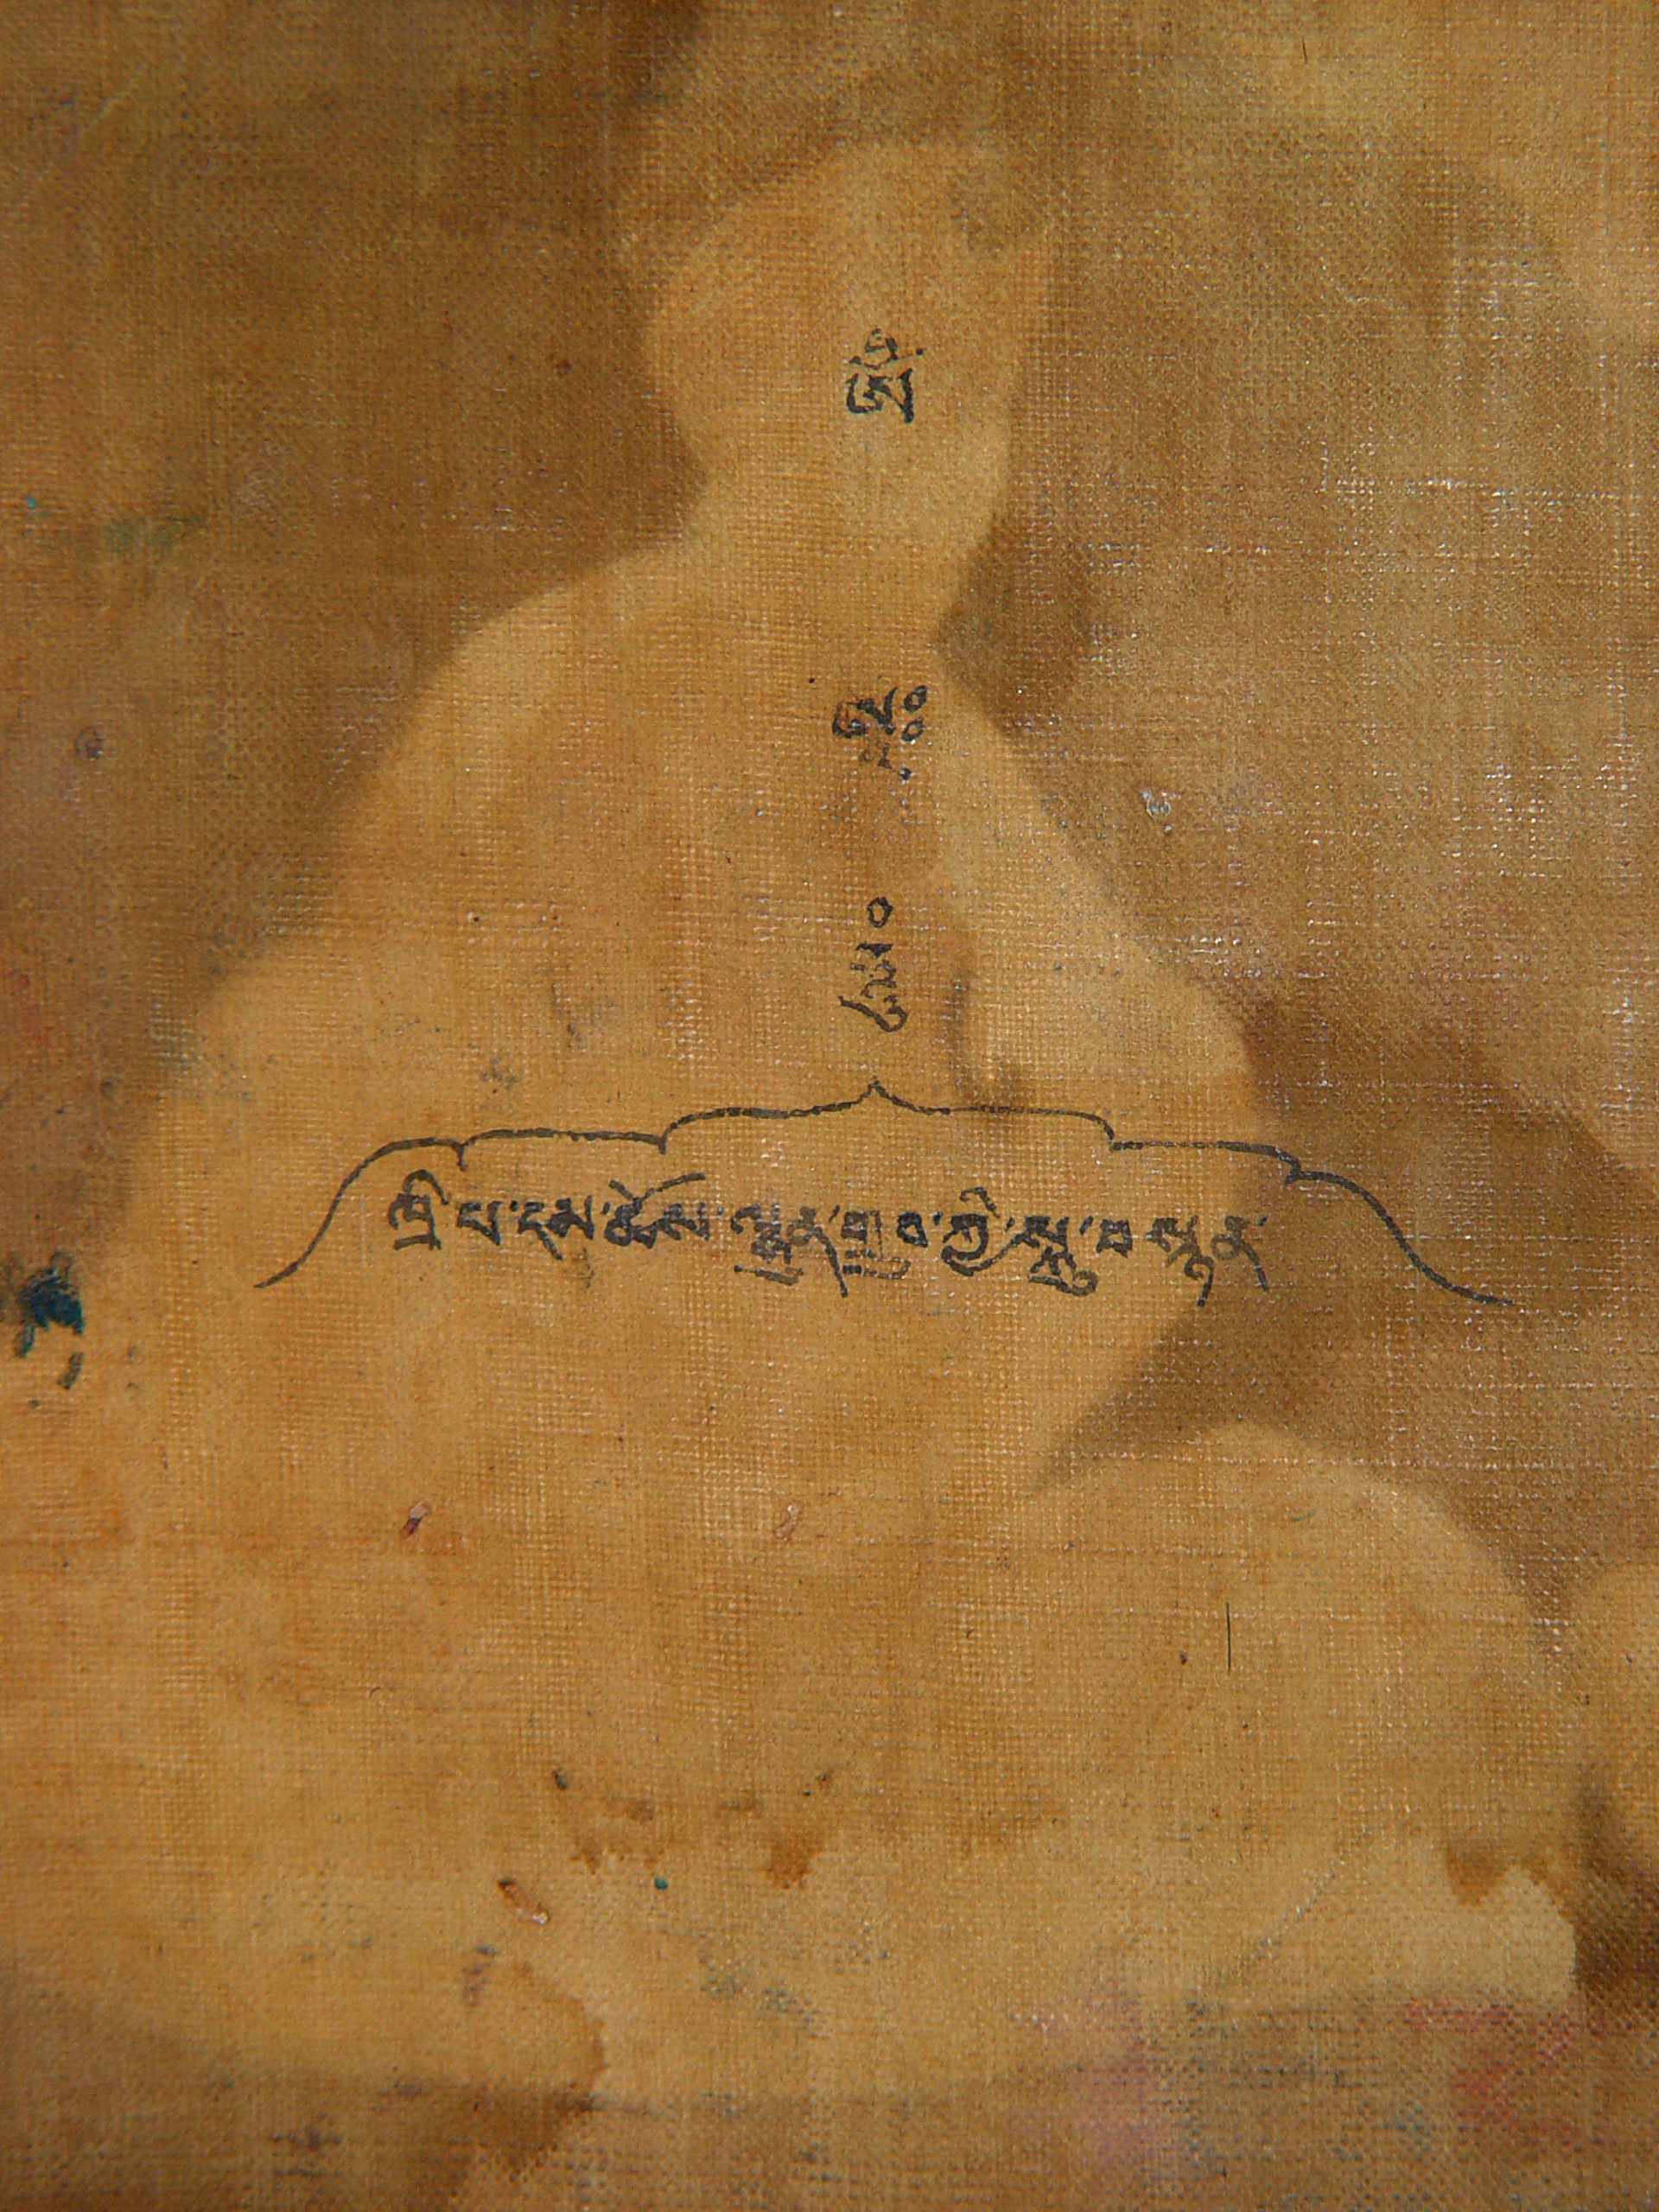 ཨོཾ
ཨཱཿ
ཧཱུཾ
ཁྲི་པ་དམ་ཆོས་ལྷུན་གྲུབ་ཀྱི་སྐུ་བསྟན་